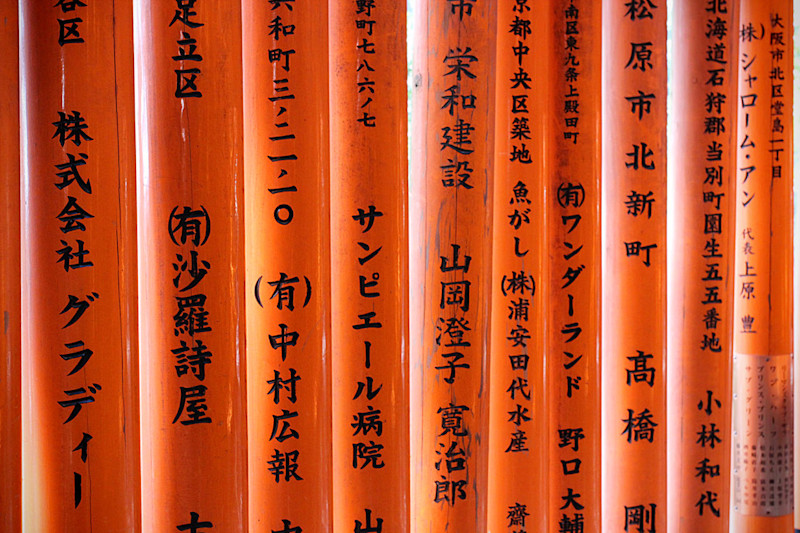 大阪市北区堂島一丁目
(株)シャローム・アン 代表 上原 豊
北海道石狩郡当別町園生五五番地 小林和代
松原市北新町 髙橋 剛
南区東九条上殿田町 (有)ワンダーランド 野口 大輔
京都中央区築地 魚がし (株)浦安田代水産 齋
市 栄和建設 山岡澄子 寛治郎
野町七八六ノ七 サンピエール病院 山
共和町三ノ二一ノ二〇 (有)中村広報 中
足立区 (有)沙羅詩屋
谷区 株式会社 グラディー